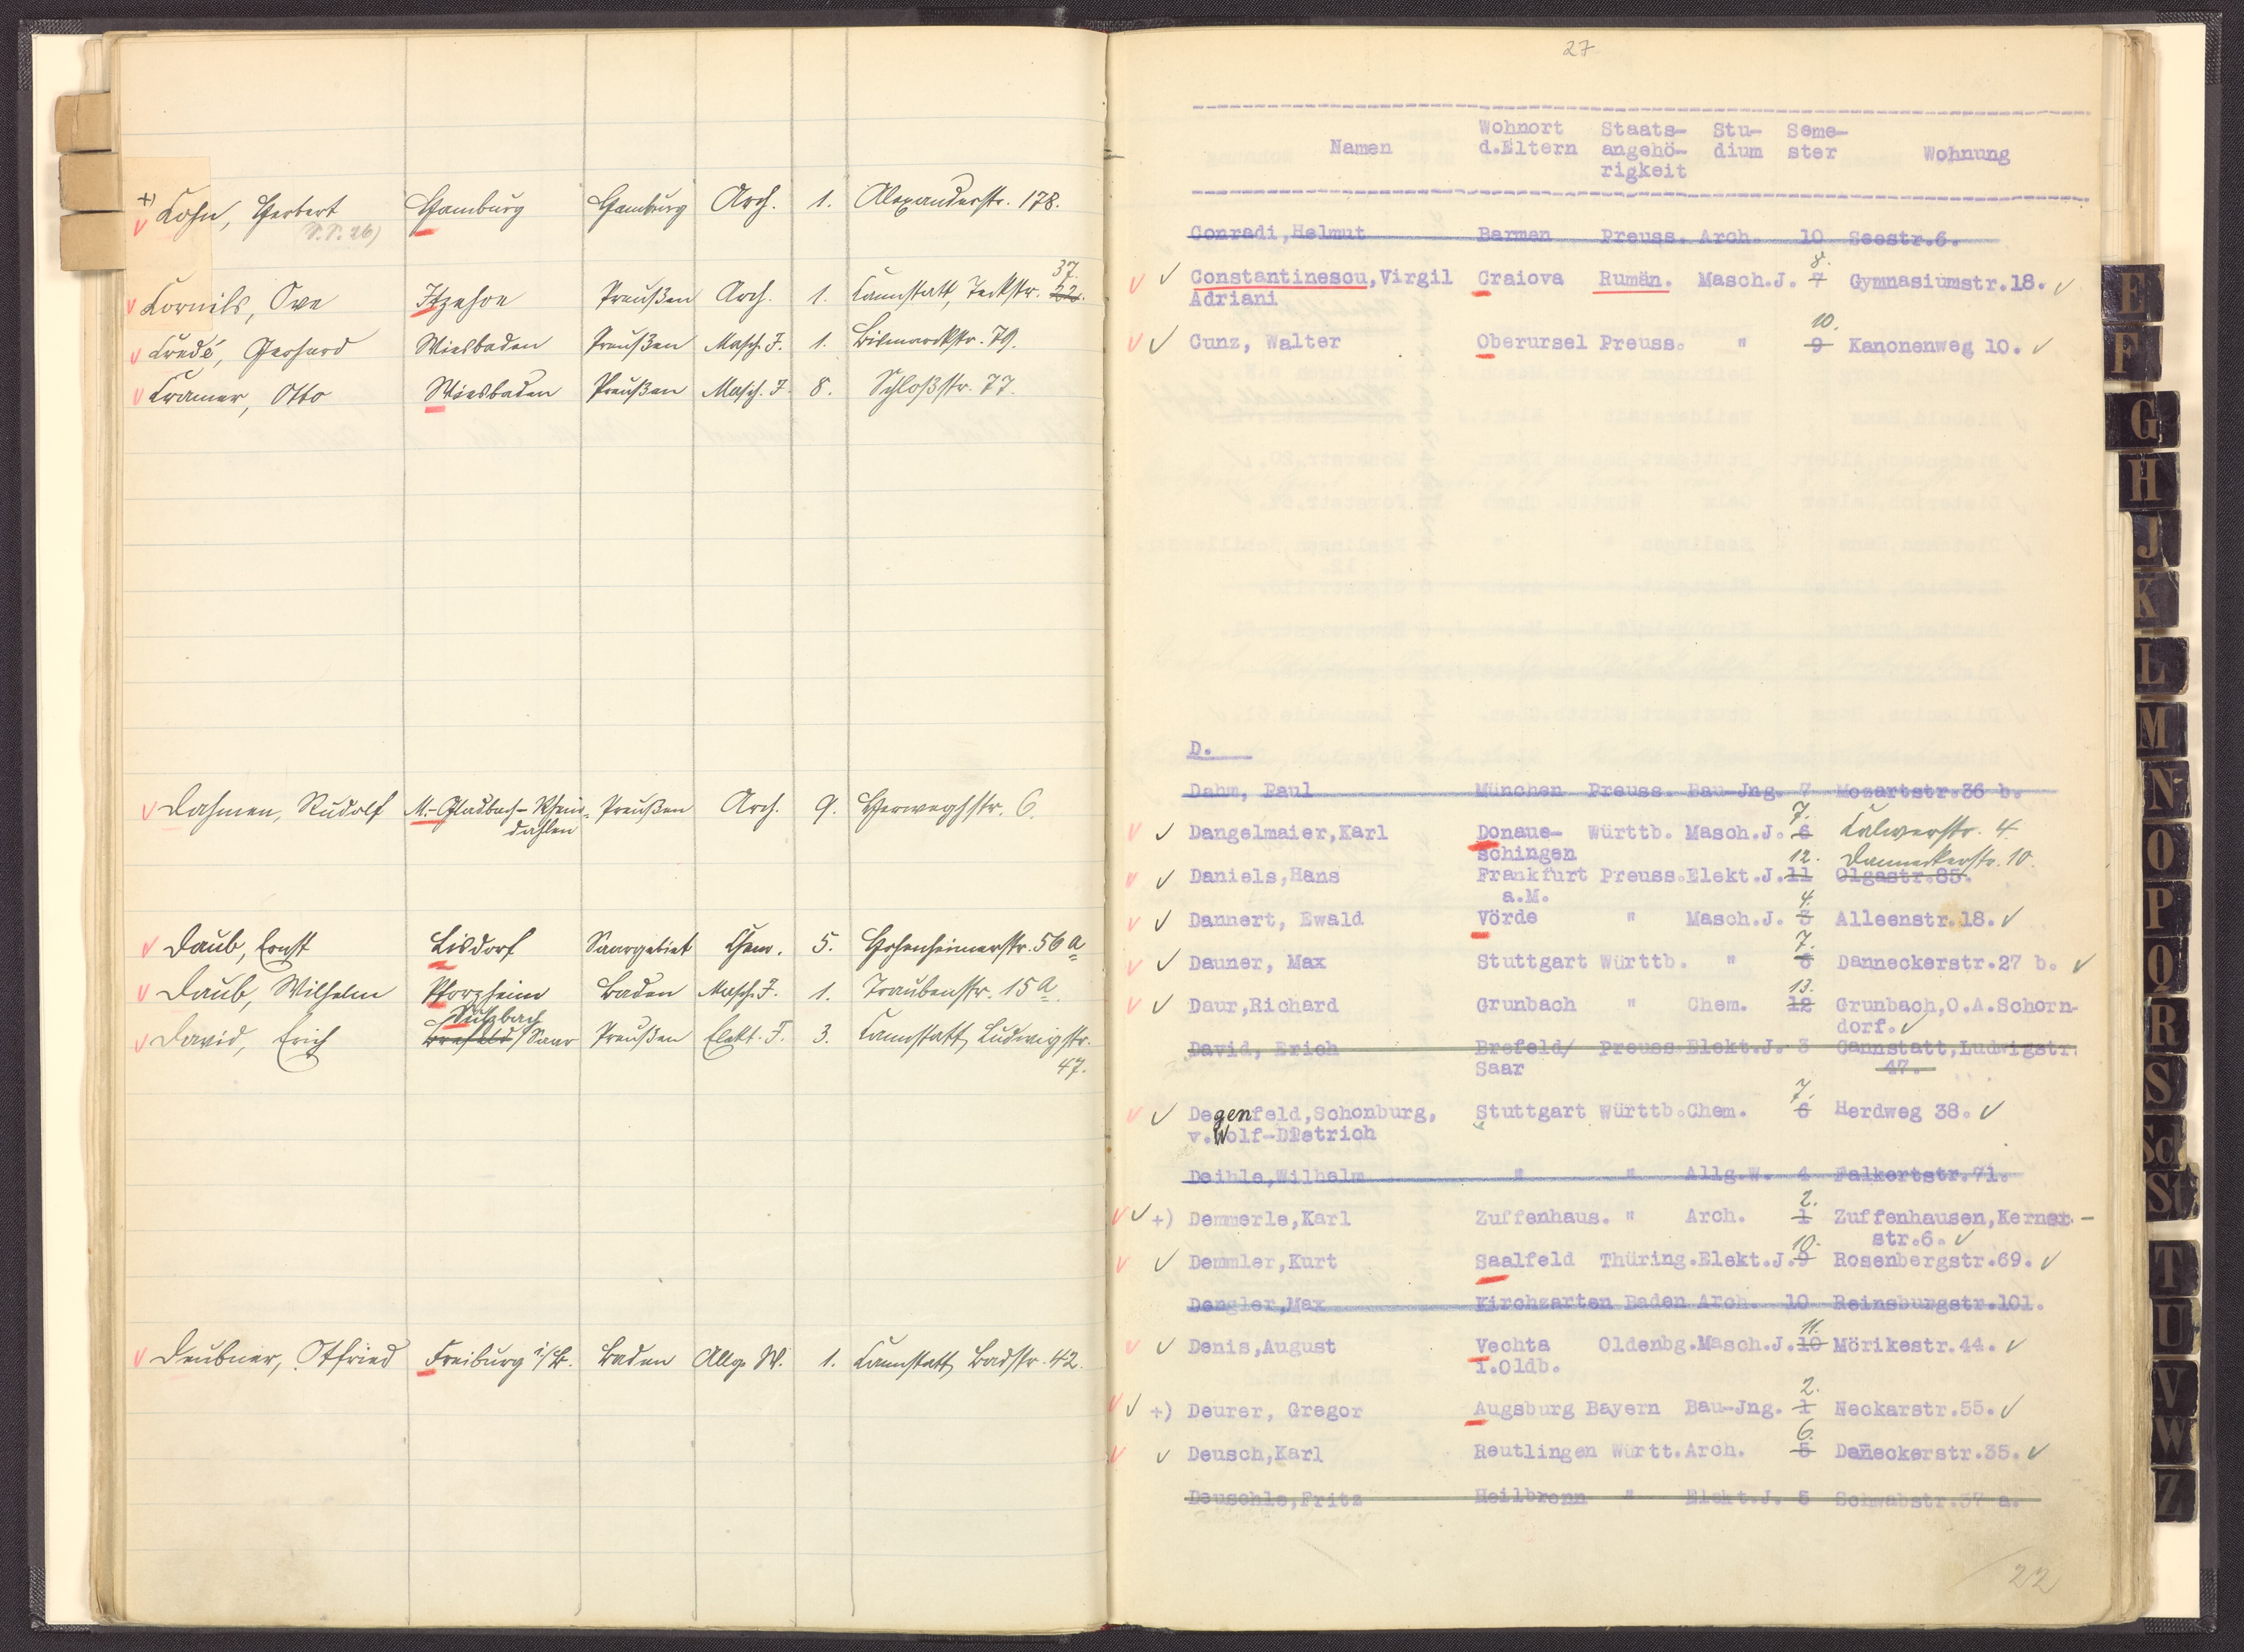 +) Cohn, Herbert Hamburg Hamburg Arch. 1. Alexanderstr. 178.
(S.S. 26)
37.
Cornils, Owe Itzehoe Preußen Arch. 1. Cannstatt, Teckstr. 22.
Credé, Gerhard Wiesbaden Preußen Masch. J. 1. Bismarckstr. 79.
Cramer, Otto Wiesbaden Preußen Masch. J. 8. Schloßstr. 77.
Dahmen, Rudolf M.-Gladbach-Rhein- Preußen Arch. 9. Herweghstr. 6.
dahlen
Daub, Ernst Lisdorf Saargebiet Chem. 5. Hohenheimerstr. 56 a
Daub, Wilhelm Pforzheim Baden Masch. J. 1. Traubenstr. 15 a.
Sulzbach
David, Erich Brefeld/Saar Preußen Elekt. J. 3. Cannstatt, Ludwigstr.
47.
Deubner, Otfried Freiburg i/B. Baden Allg. W. 1. Cannstatt, Badstr. 42.
27
Wohnort Staats- Stu- Seme-
Namen d.Eltern angehö- dium ster Wohnung
rigkeit
Conradi,Helmut Barmen Preuss. Arch. 10 Seestr.6.
8.
Constantinescu,Virgil Craiova Rumän. Masch.J. 7 Gymnasiumstr.18.
Adriani
10.
Cunz, Walter Oberursel Preuss. " 9 Kanonenweg 10.
D.
Dahm, Paul München Preuss. Bau-Jng. 7 Mozartstr.36 b.
7.
Dangelmaier,Karl Donaue- Württb. Masch.J. 6 Calwerstr. 4.
schingen 12. Danneckerstr. 10.
Daniels,Hans Frankfurt Preuss.Elekt.J.11 Olgastr.85.
a.M. 4.
Dannert, Ewald Vörde " Masch.J. 3 Alleenstr.18.
7.
Dauner, Max Stuttgart Württb. " 6 Danneckerstr.27 b.
13.
Daur,Richard Grunbach " Chem. 12 Grunbach,O.A.Schorn-
dorf.
David, Erich Brefeld/ Preuss Elekt.J. 3 Cannstatt,Ludwigstr.
Saar 47.
7.
Degenfeld,Schonburg, Stuttgart Württb.Chem. 6 Herdweg 38.
v.Wolf-Dietrich
Deihle,Wilhelm " " Allg.W. 4 Falkertstr.71.
2.
+) Demmerle,Karl Zuffenhaus. " Arch. 1 Zuffenhausen,Kerner-
10. str.6.
Demmler,Kurt Saalfeld Thüring.Elekt.J.9 Rosenbergstr.69.
Dengler,Max Kirchzarten Baden Arch. 10 Reinsburgstr.101.
11.
Denis,August Vechta Oldenbg.Masch.J.10 Mörikestr.44.
i.Oldb.
2.
+) Deurer, Gregor Augsburg Bayern Bau-Jng. 1 Neckarstr.55.
6.
Deusch,Karl Reutlingen Württ.Arch. 5 Dañeckerstr.35.
Deuschle,Fritz Heilbronn " Elekt.J. 5 Schwabstr.37 a.
22
E
F
G
H
J
K
L
M
N
O
P
Q
R
S
Sch
St
T
U
V
W
Z